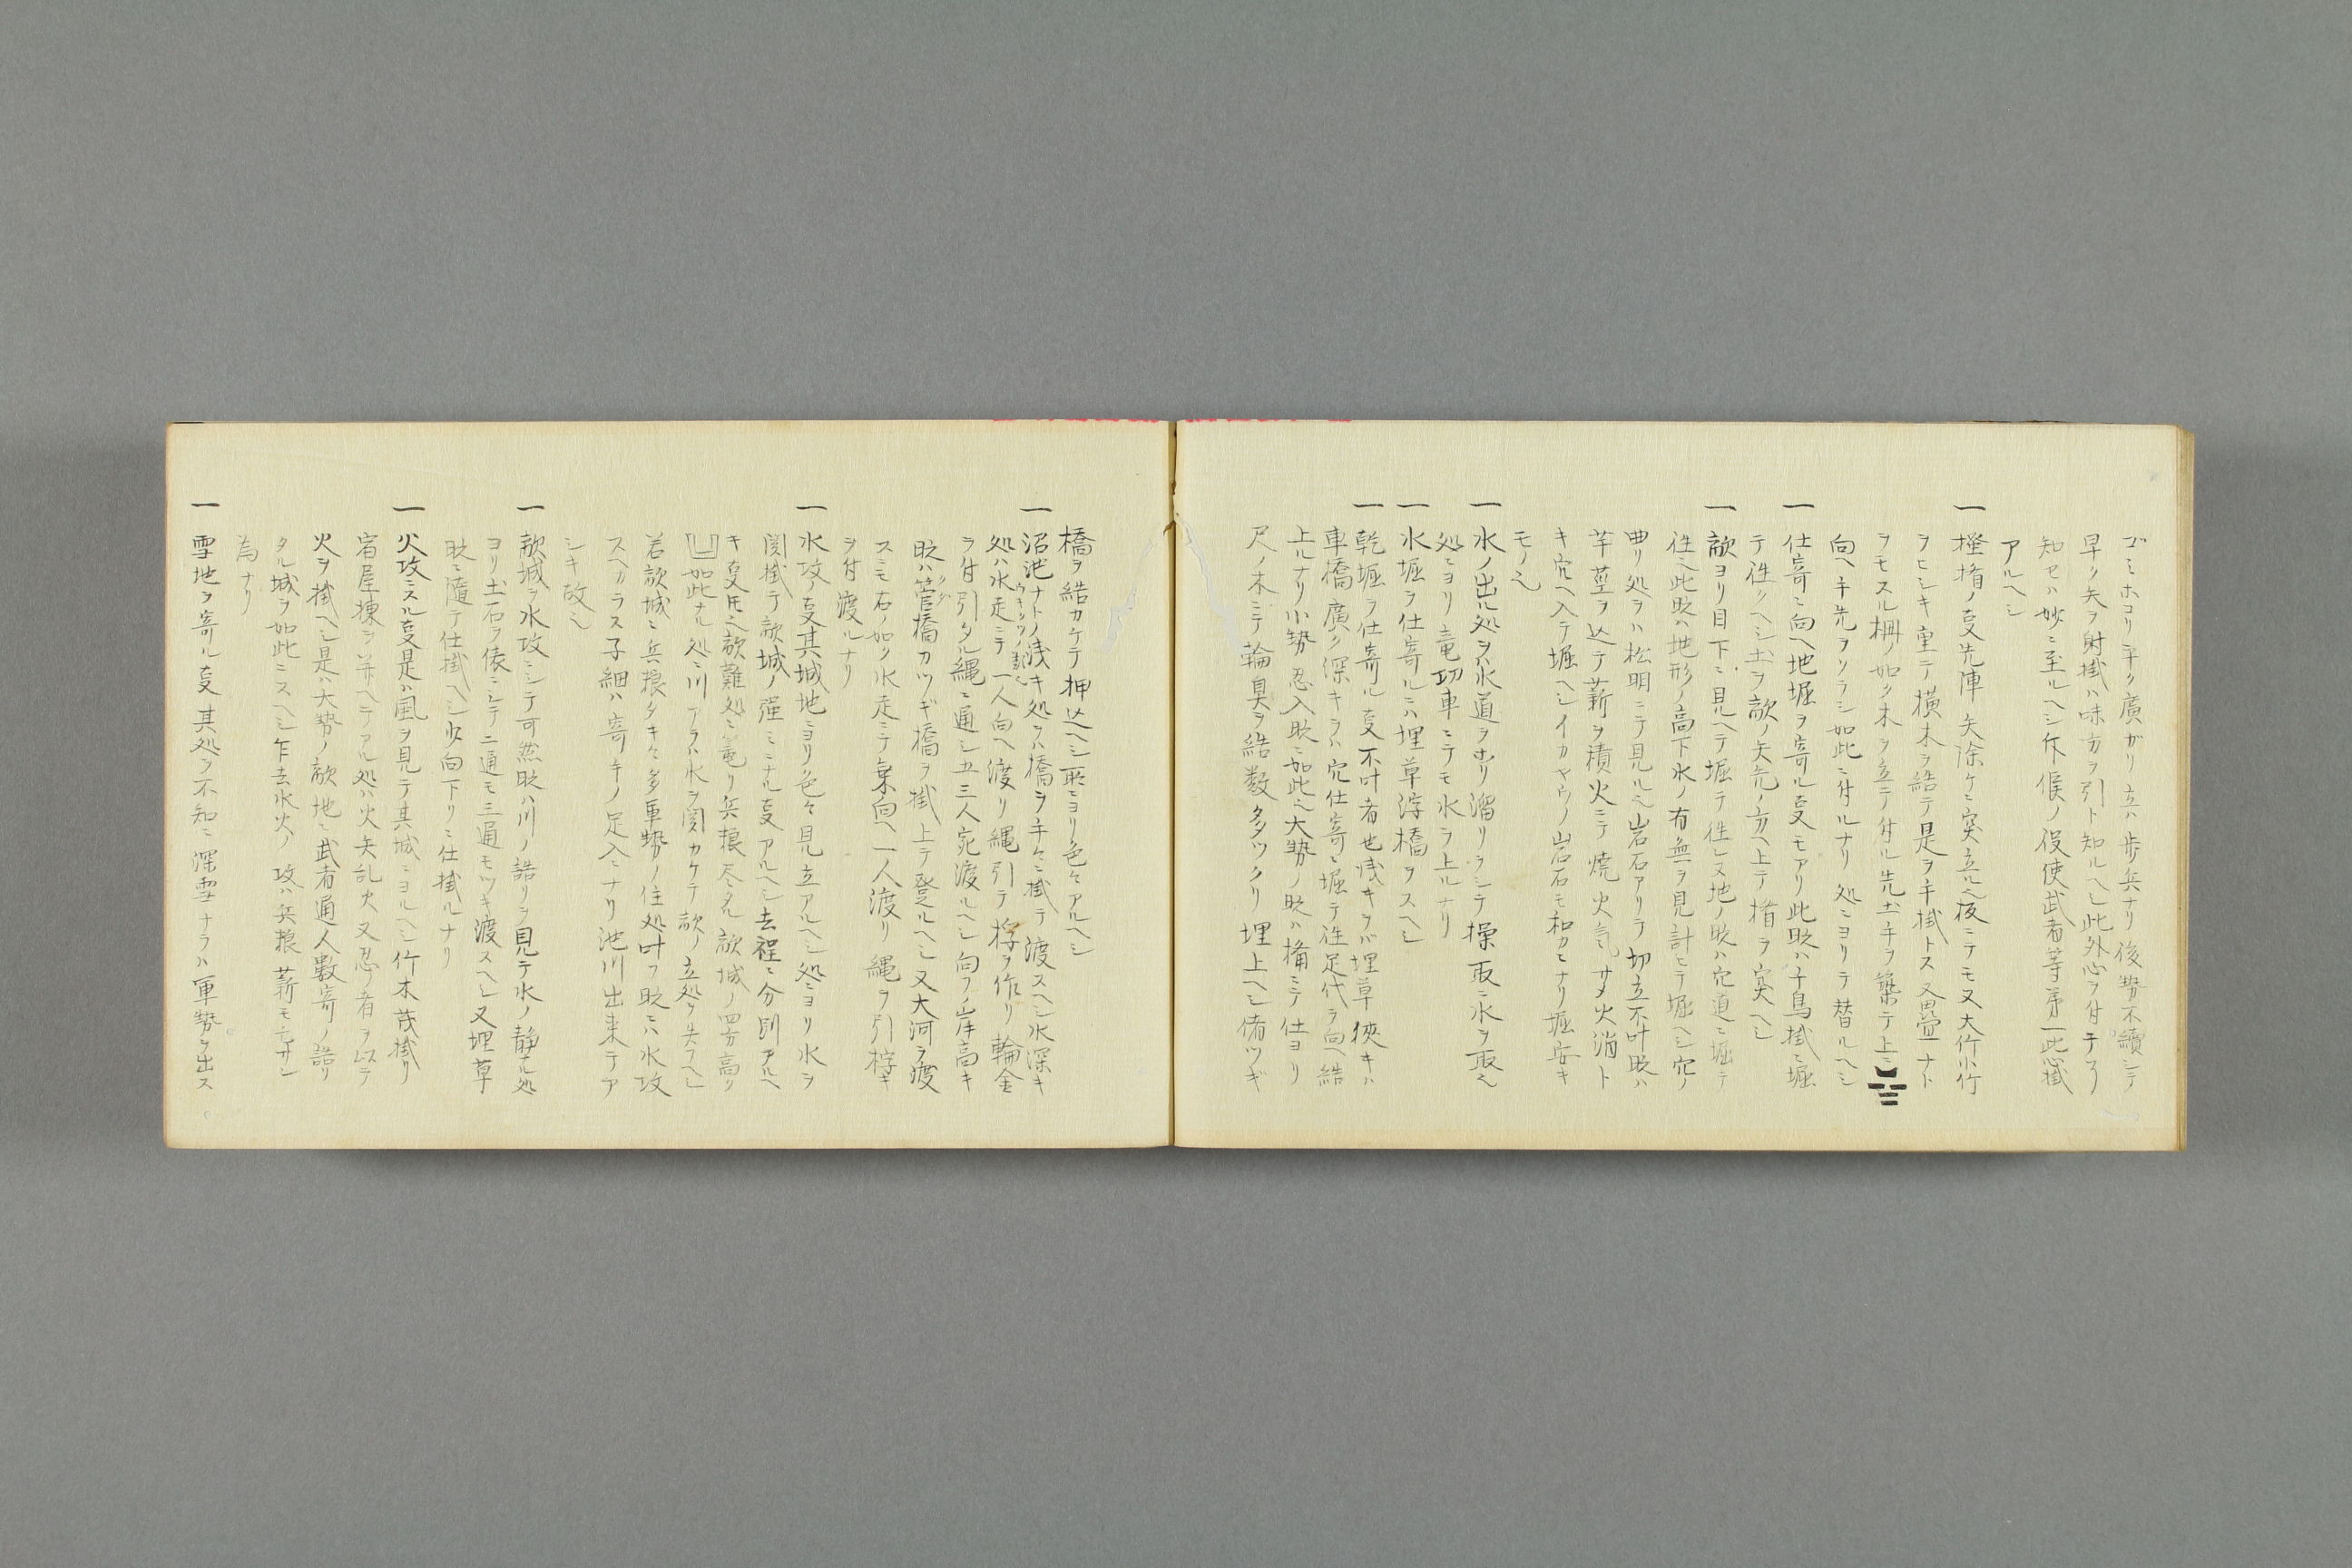 ゴミホコリ平ク廣ガリ立ハ歩兵ナリ後勢不續シテ
早ク矢ヲ射掛ハ味方ヲ引ト知ルヘシ此外心ヲ付テ
知セハ妙ニ至ルヘシ斥候ノ役使武者等第一此心掛
アルヘシ
一 掻楯ノ叓先陣矢除ケニ突立ル也板ニテモ又大竹小竹
ヲヒシキ重テ横木ヲ結テ是ヲ手掛トス又畳ナト
ヲモスル柵ノ如ク木ヲ立テ付ル先土手ヲ築テ上ニ
向ヘ手先ヲソラシ如此ニ付ルナリ処ニヨリテ替ルヘシ
一 仕寄ニ向ヘ地堀ヲ寄ル叓モアリ此時ハ子鳥掛ニ堀
テ往クヘシ土ヲ敵ノ矢先ノ方ヘ上テ楯ヲ突ヘシ
一 敵ヨリ目下ニ見ヘテ堀テ往ヘ又地ノ時ハ穴道ニ堀テ
往ヘ此時ハ地形ノ高下水ノ有無ヲ見計ヒテ堀ヘシ穴ノ
曲リ処ヲハ松明ニテ見ル也岩石アリテ切立不叶時ハ
芋茎ヲ込テ薪ヲ積火ニテ焼火気サメ火消ト
キ穴ヘ入テ堀ヘシイカヤウノ岩石モ和カヒナリ堀安キ
モノ也
一 水ノ出ル処ヲハ水道ヲホリ溜リヲシテ操取ニ水ヲ取也
処ニヨリ竜功車ニテモ水ヲ上ルナリ
一 水堀ヲ仕寄ルニハ埋草浮橋ヲスヘシ
一 乾堀ヲ仕寄ル叓不叶者也浅キヲバ埋草狹キハ
車橋廣ク深キヲハ穴仕寄ニ堀テ往足代ヲ向ヘ結
上ルナリ小勢忍入時ニ如此也大勢ノ時ハ桶ニテ仕ヨリ
尺ノ木ニテ輪臭ヲ結数多ツクリ埋上ヘシ偖ツギ
橋ヲ結カケテ押込ヘシ所ニヨリ色々アルヘシ
一 沼池ナトノ浅キ処ヲハ橋ヲ手々ニ掛テ渡スヘシ水深キ
処ハ水走ニテ一人向ヘ渡リ縄引テ桴ヲ作リ輪金
ヲ付引タル縄ニ通シ五三人宛渡ルヘシ向フノ岸高キ
時ハ菅橋カツギ橋ヲ掛上テ登ルヘシ又大河ヲ渡
スニモ右ノ如ク水走ニテ乗向ヘ一人渡リ縄ヲ引桴キ
ヲ付渡ルナリ
一 水攻ノ叓其城地ニヨリ色々見立アルヘシ処ニヨリ水ヲ
関掛テ敵城ノ强ミニナル叓アルヘシ去程ニ分別アルヘ
キ叓氏也敵難処ニ竜リ兵粮尽タル敵城ノ四方高ク
凵如此ナル処ニ川アラハ水ヲ関カケテ敵ノ立処ヲ失フヘシ
若敵城ニ兵粮タキヽ多軍勢ノ住処叶フ時ニハ水攻
スヘカラス子細ハ寄手ノ足入ニナリ池川出来テア
シキ故也
一 敵城ヲ水攻ニシテ可然時ハ川ノ詰リヲ見テ水ノ静ナル処
ヨリ土石ヲ俵ニシテ二通モ三通モツキ渡スヘシ又埋草
時ニ隨テ仕掛ヘシ少向下リニ仕掛ルナリ
一 火攻ニスル叓是ハ風ヲ見テ其城ニヨルヘシ竹木茂掛リ
宿屋棟ヲ并ヘテアル処ハ火矢乱火又忍ノ者ヲ以テ
火ヲ掛ヘシ是ハ大勢ノ敵地ニ武者通人數寄ノ詰リ
タル城ヲ如此ニスヘシ乍去水火ノ攻ハ兵粮薪モモサン
為ナリ
一 雪地ヲ寄ル叓其処ヲ不知ニ深雪ナラハ軍勢ヲ出ス